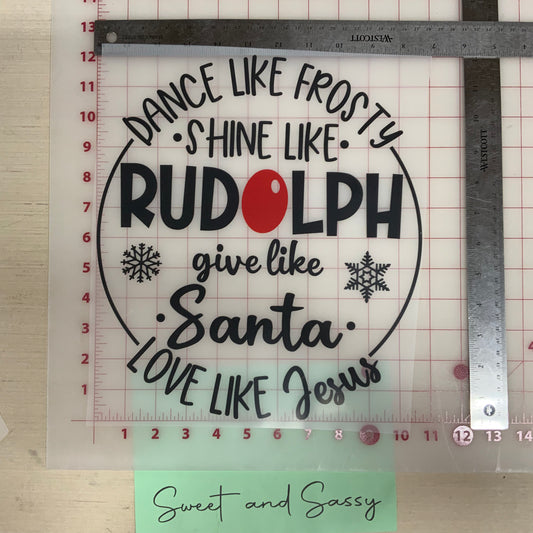 WESTCOTT
WESTCOTT
DANCE LIKE FROSTY
•SHINE LIKE•
RUDOLPH
give like
•Santa•
LOVE LIKE Jesus
13
12
11
10
9
8
7
6
5
4
3
2
1
1 2 3 4 5 6 7 8 9 10 11 12 13 14
Sweet and Sassy